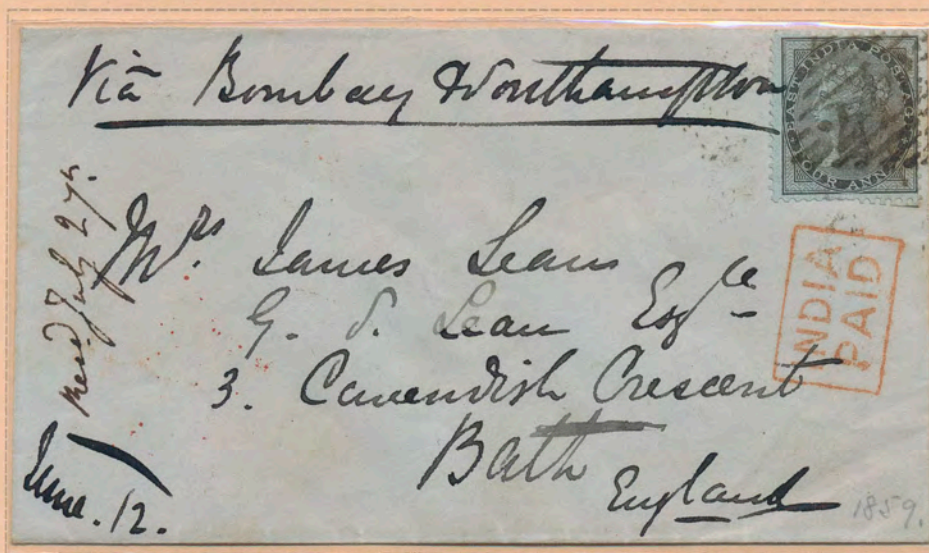 Via Bombay & Southampton
EAST INDIA POSTAGE
FOUR ANNAS
INDIA
PAID
Mrs. James Lean
G. S. Lean Esqre
3. Cavendish Crescent
Bath
England
Recd. July 27th.
June. 12.
1859.